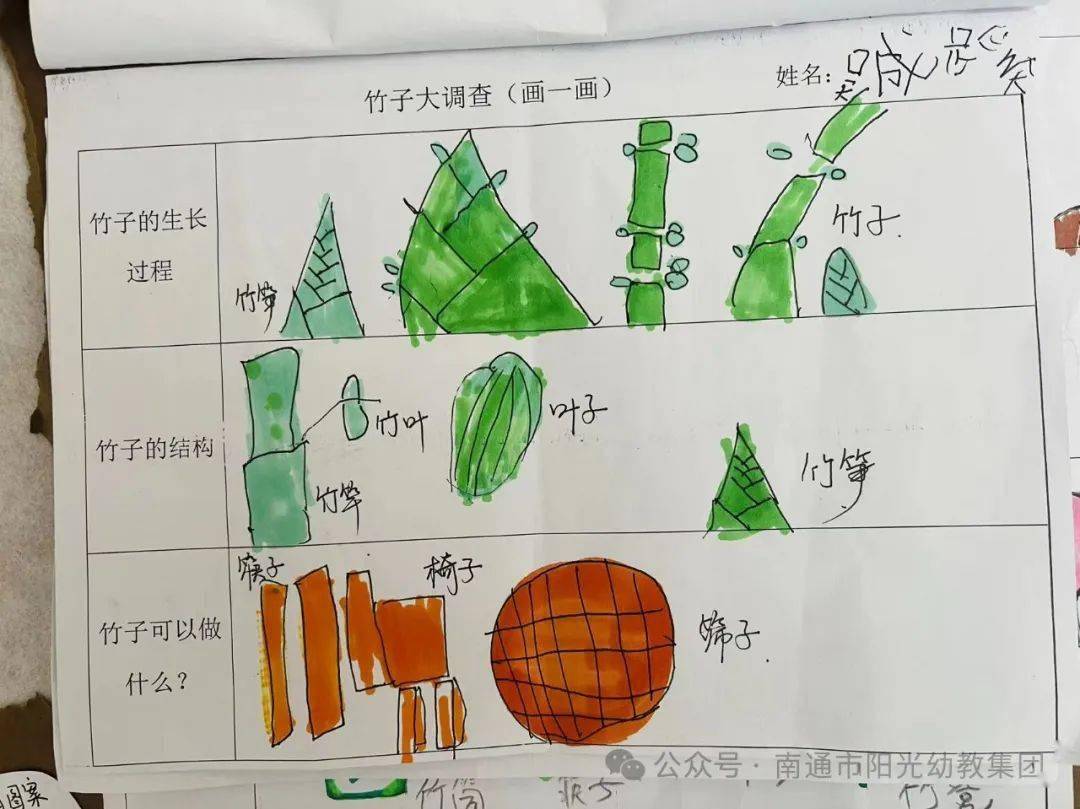 竹子大调查（画一画）
姓名：
竹子的生长
过程
竹笋
竹子.
竹子的结构
竹叶
竹竿
叶子
竹笋
竹子可以做
什么？
筷子
椅子
筛子.
公众号 · 南通市阳光幼教集团
竹筒
图案